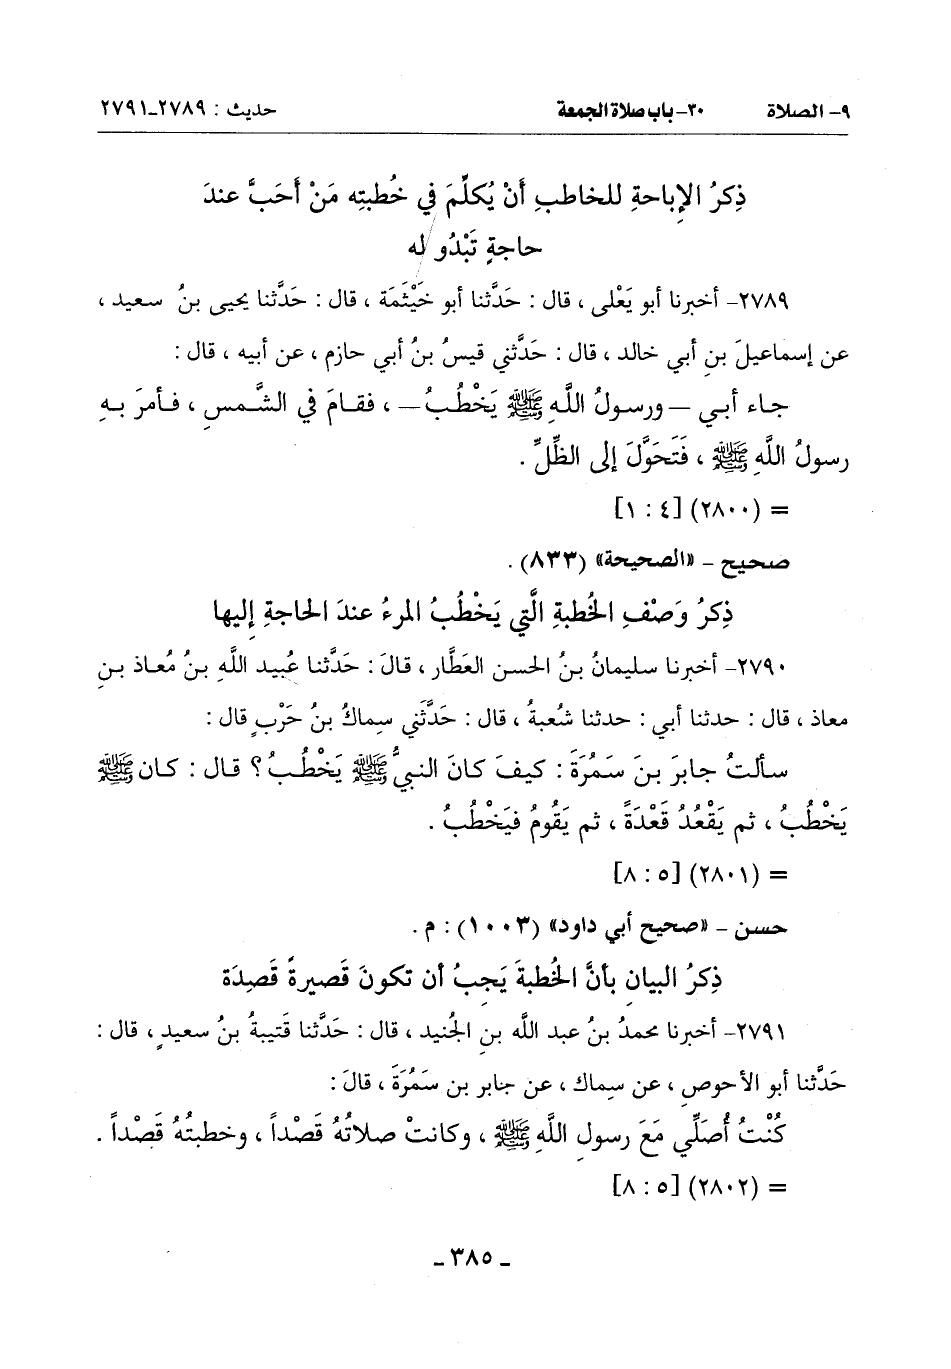 ٩- الصلاة ٣٠- باب صلاة الجمعة حديث : ٢٧٨٩-٢٧٩١
ذِكرُ الإِباحةِ للخاطبِ أَنْ يُكلِّمَ في خُطبتِه مَنْ أَحَبَّ عندَ
حاجةٍ تَبْدُو له
٢٧٨٩- أخبرنا أبو يَعْلى ، قال : حَدَّثنا أبو خَيْثَمَة ، قال : حَدَّثنا يحيى بنُ سعيد ،
عن إسماعيلَ بنِ أبي خالد ، قال : حَدَّثني قيسُ بنُ أبي حازم ، عن أبيه ، قال :
جاء أبي – ورسولُ اللَّهِ ﷺ يَخْطُبُ – ، فقامَ في الشَّمسِ ، فأمرَ بهِ
رسولُ اللَّهِ ﷺ ، فَتَحَوَّلَ إلى الظِّلِّ .
= (٢٨٠٠) [٤ : ١]
صحيح - «الصحيحة» (٨٣٣) .
ذِكرُ وَصْفِ الخُطبةِ الَّتي يَخْطُبُ المرءُ عندَ الحاجةِ إليها
٢٧٩٠- أخبرنا سليمانُ بنُ الحسن العَطَّار ، قالَ : حَدَّثنا عُبيد اللَّهِ بنُ مُعاذ بنِ
معاذ ، قال : حدثنا أبي : حدثنا شُعبةُ ، قال : حَدَّثَني سِماكُ بنُ حَرْبٍ قال :
سألتُ جابرَ بنَ سَمُرَةَ : كيفَ كانَ النبيُّ ﷺ يَخْطُبُ؟ قال : كان ﷺ
يَخْطُبُ ، ثم يَقْعُدُ قَعْدَةً ، ثم يَقُومُ فيَخْطُبُ .
= (٢٨٠١) [٥ : ٨]
حسن - «صحيح أبي داود» (١٠٠٣) : م .
ذِكرُ البيان بأنَّ الخُطبةَ يَجبُ أن تكونَ قَصيرةً قَصِدَة
٢٧٩١- أخبرنا محمدُ بنُ عبد اللَّه بنِ الجُنيد ، قال : حَدَّثنا قَتيبةُ بنُ سعيدٍ ، قال :
حَدَّثنا أبو الأحوصِ ، عن سِماك ، عن جابر بن سَمُرَةَ ، قالَ :
كُنْتُ أُصَلِّي مَعَ رسولِ اللَّهِ ﷺ ، وكانتْ صلاتُهُ قَصْداً ، وخطبتُهُ قَصْداً .
= (٢٨٠٢) [٥ : ٨]
- ٣٨٥ -